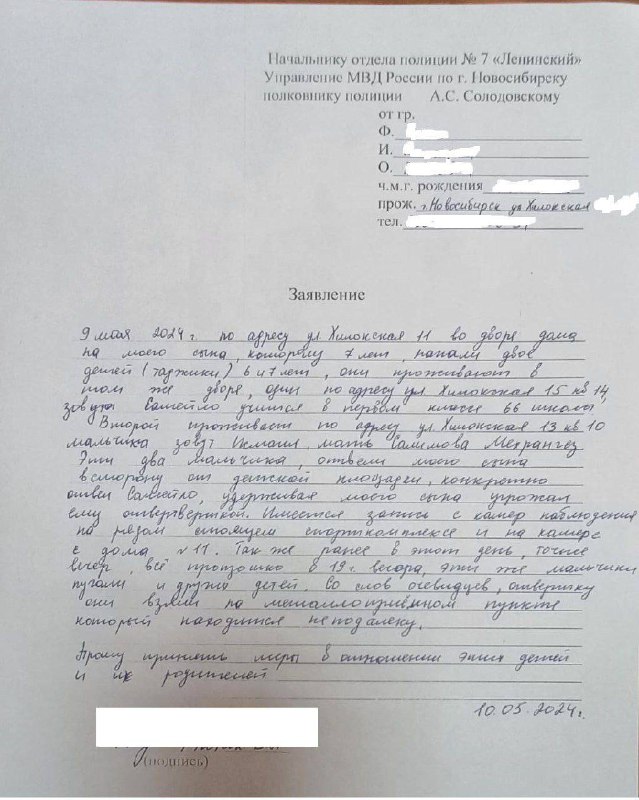 Начальнику отдела полиции № 7 «Ленинский»
Управление МВД России по г. Новосибирску
полковнику полиции А.С. Солодовскому
от гр.
Ф.
И.
О.
ч.м.г. рождения
прож. г. Новосибирск ул Хилокская
тел.
Заявление
9 мая 2024 г. по адресу ул. Хилокская 11 во дворе дома
на моего сына, которому 7 лет, напали двое
детей (таджики) 6 и 7 лет, они проживают в
том же дворе, один по адресу ул. Хилокская 15 кв 14,
зовут Самейло учится в первом классе 66 школы,
Второй проживает по адресу ул. Хилокская 13 кв 10
мальчика зовут Исмаил, мать Салимова Мехрангез
Эти два мальчика, отвели моего сына
в сторону от детской площадки, конкретно
отвел Самейло, удерживая моего сына угрожал
ему отвёрткой. Имеется запись с камер наблюдения
на рядом стоящем спорткомплексе и на камере
с дома №11. Так же ранее в этот день, точнее
вечер, всё произошло в 19 ч. вечера, эти же мальчики
пугали и других детей. Со слов очевидцев, отвертку
они взяли на металлоприёмном пункте
который находится неподалеку.
Прошу принять меры в отношении этих детей
и их родителей
10.05.2024 г.
(подпись)